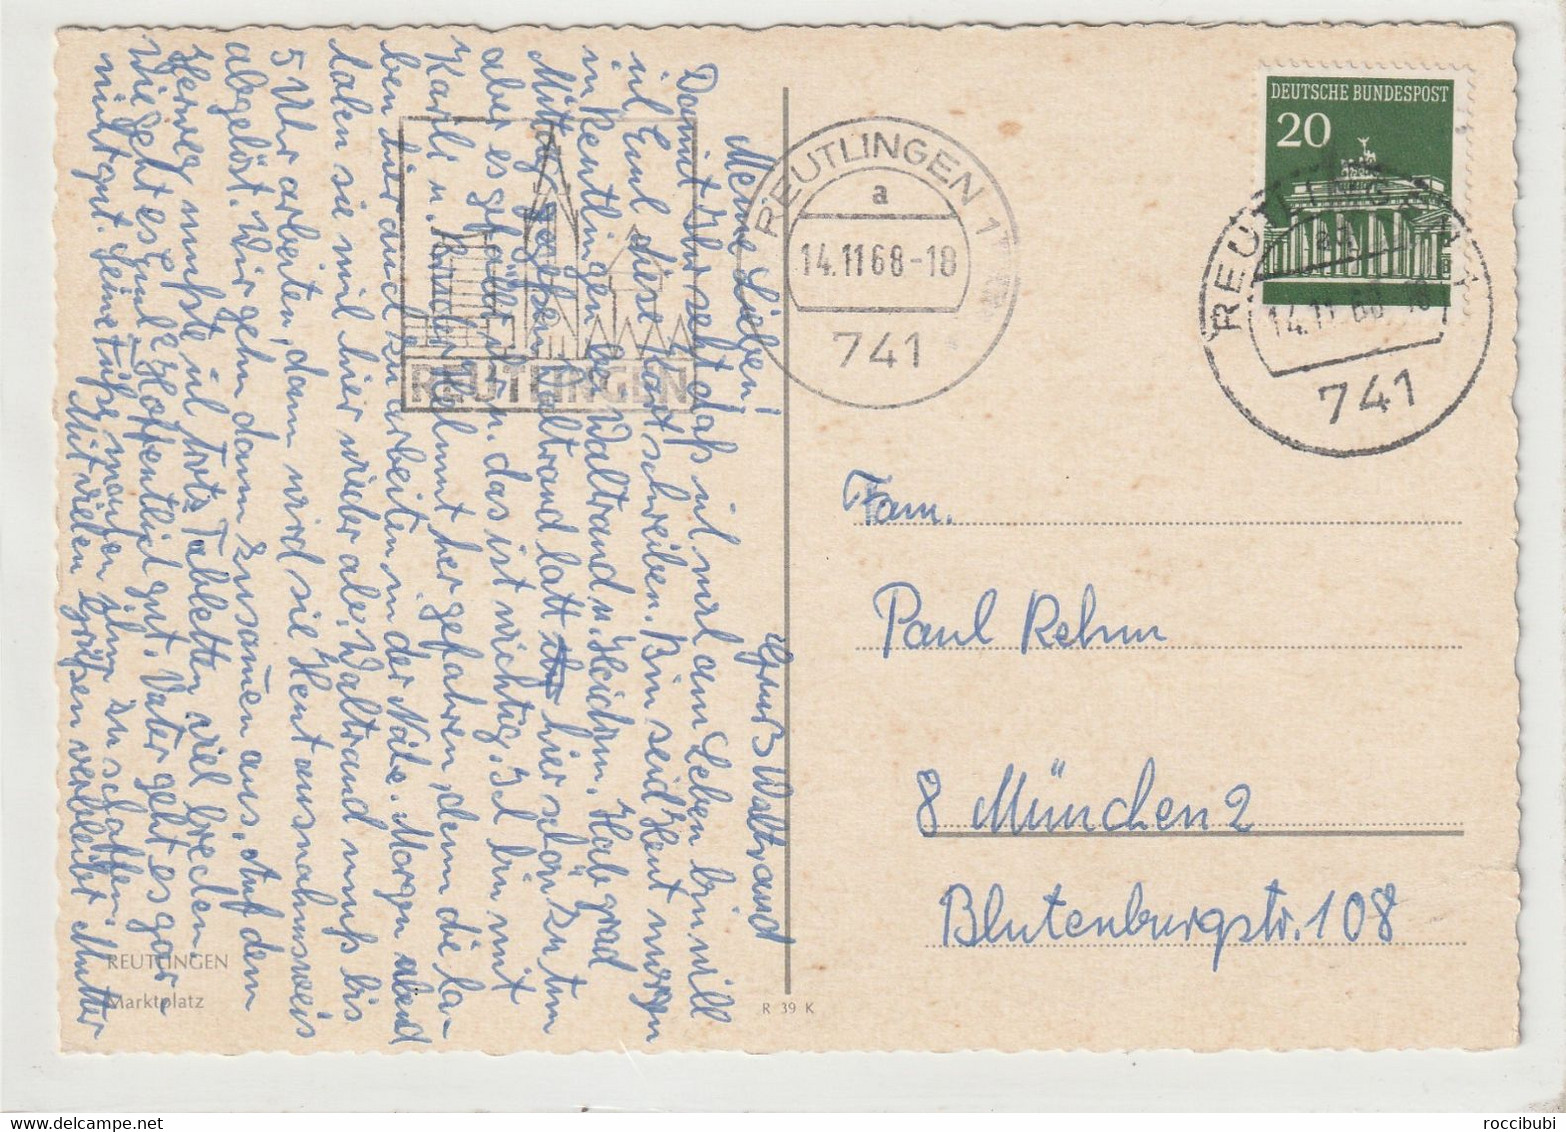 Meine Lieben!
Damit Ihr seht daß ich noch am Leben bin will
ich Euch diese Karte schreiben. Bin seid Heut morgen
in Reutlingen bei Waltraud u. Heidrun. Hab grad
Mittag gegessen. Waltraud hatt hier schön zu tun
aber es gefällt ihr u. das ist wichtig. Ich bin mit
Karli u. hergefahren, denn die la-
ben hier auch zu arbeiten in der Nähe. Morgen abend
holen sie mich hier wieder ab. Waltraud muß bis
5 Uhr arbeiten, dann wird sie Heut ausnahmsweis
abgelöst. Wir gehn dann zusammen aus. Auf dem
Herweg mußte ich trotz Tabletten viel brechen.
Wie geht es Euch? Hoffentlich gut. Vater geht es gar
nicht gut. Seine Füße machen ihm zu schaffen.
Mit vielen Grüßen verbleibt Mutter
Gruß Waltraud
REUTLINGEN
Marktplatz
R 39 K
REUTLINGEN
REUTLINGEN 1
a
14.11.68-18
741
DEUTSCHE BUNDESPOST
20
REUTLINGEN 1
14.11.68-18
741
Fam.
Paul Rehm
8 München 2
Blutenburgstr. 108
roccibubi